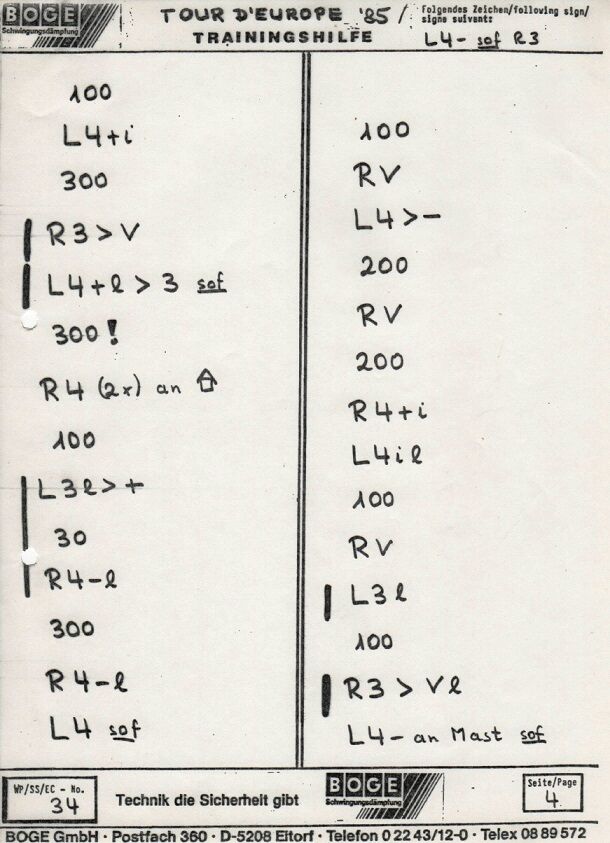 BOGE
Schwingungsdämpfung
TOUR D'EUROPE '85 /
TRAININGSHILFE
folgendes Zeichen/following sign/
signe suivant:
L4- sof R3
100
L4+i
300
R3>V
L4+l>3 sof
300!
R4 (2x) an
100
L3l>+
30
R4-l
300
R4-l
L4 sof
100
RV
L4>-
200
RV
200
R4+i
L4il
100
RV
L3l
100
R3>Vl
L4- an Mast sof
WP/SS/EC - No.
34
Technik die Sicherheit gibt
BOGE
Schwingungsdämpfung
Seite/Page
4
BOGE GmbH · Postfach 360 · D-5208 Eitorf · Telefon 0 22 43/12-0 · Telex 08 89 572